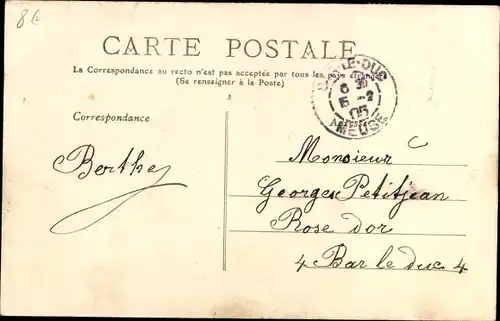 8€
CARTE POSTALE
La Correspondance au recto n'est pas acceptée par tous les pays étrangers
(Se renseigner à la Poste)
BAR-LE-DUC
6 30
15 -2
05
MEUSE
Correspondance
Berthe
Monsieur
Georges Petitjean
Rose d'or
4 Bar le duc 4